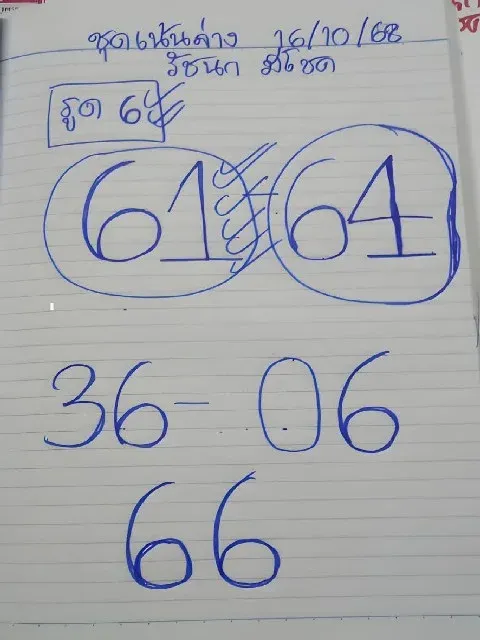 ชุดเน้นล่าง 16/10/68
รัชนก มีโชค
รูด 6
61 64
36 - 06
66